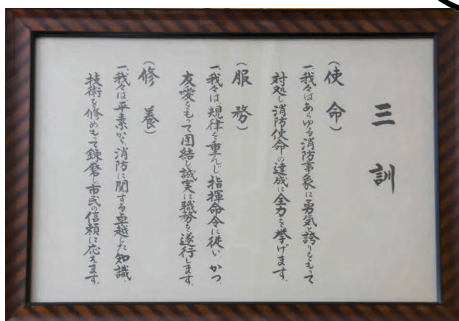 三訓
(使命)
一、我々はあらゆる消防事象に勇気と誇りをもって
対処し消防使命の達成に全力を挙げます。
(服務)
一、我々は規律を重んじ指揮命令に従いかつ
友愛をもって団結し誠実に職務を遂行します。
(修養)
一、我々は平素から消防に関する卓越した知識
技術を修めもって錬磨し市民の信頼に応えます。